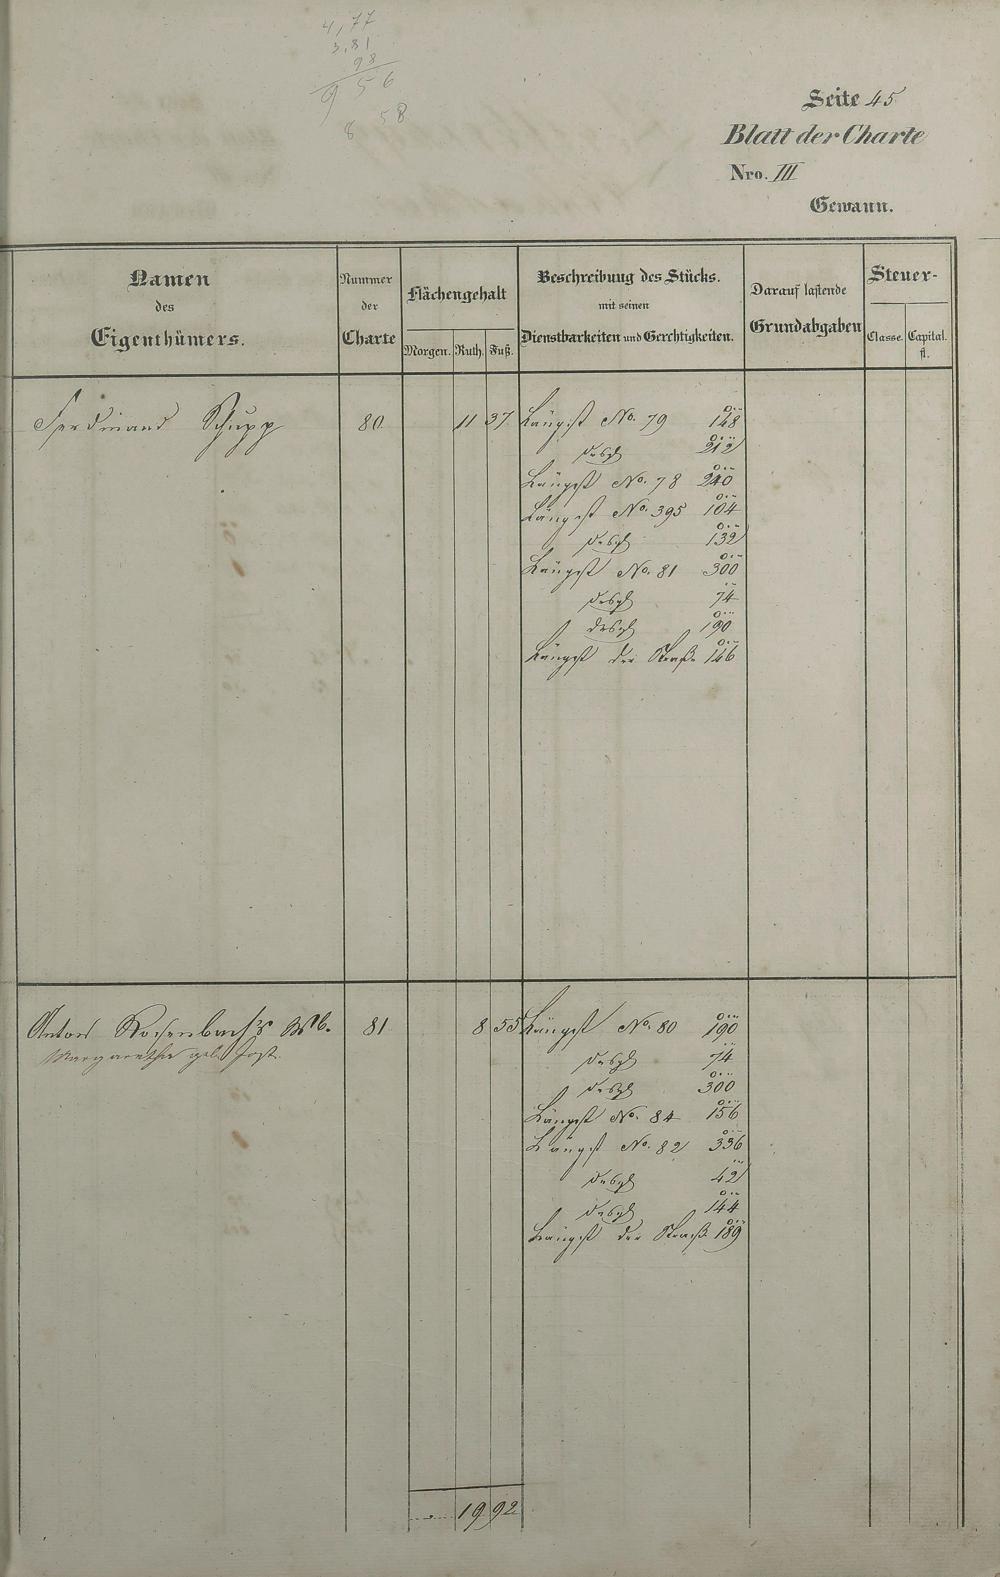 4,77
3,81
98
9 56
8 58
Seite 45
Blatt der Charte
Nro. III
Gewann.
Namen
des
Eigenthümers.
Nummer
der
Charte
Flächengehalt
Morgen. Ruth. Fuß.
Beschreibung des Stücks.
mit seinen
Dienstbarkeiten und Gerechtigkeiten.
Darauf lastende
Grundabgaben
Steuer-
Classe. Capital.
fl.
Ferdinand Schupp 80 11 37 Längst No. 79 148
desgl 212
Längst No. 78 240
Längst No. 395 104
desgl 132
Längst No. 81 300
desgl 74
desgl 190
Längst der Straße 146
Anton Rosenbach's Wb. 81 8 55 Längst No. 80 190
Margaretha geb. Jost.
desgl 74
desgl 300
Längst No. 84 156
Längst No. 82 336
desgl 42
desgl 144
Längst der Straße 189
19 92